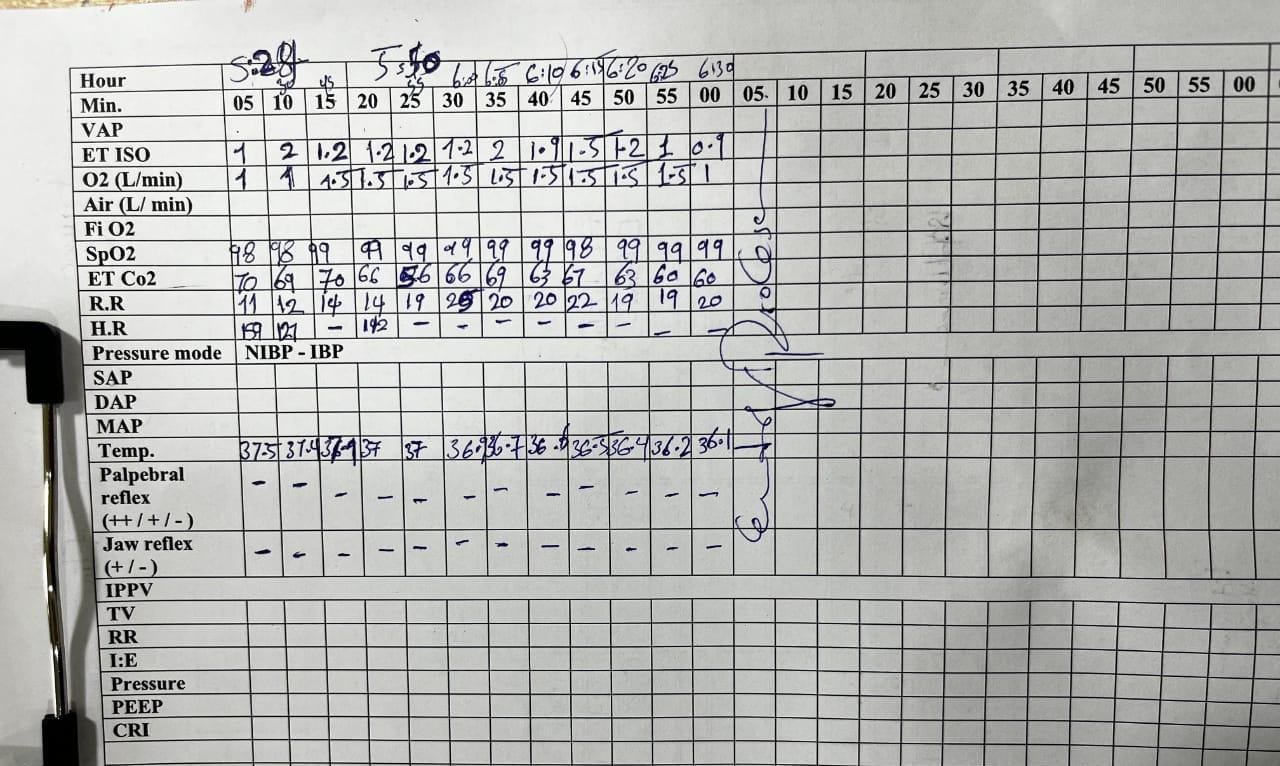 5:28 5:50
Hour 30 45 55 6:8 6:10 6:15 6:20 6:25 6:30
Min. 05 10 15 20 25 30 35 40 45 50 55 00 05. 10 15 20 25 30 35 40 45 50 55 00
VAP
ET ISO 1 2 1.2 1.2 1.2 1.2 2 1.9 1.5 1.2 1 0.9
O2 (L/min) 1 1 1.5 1.5 1.5 1.5 1.5 1.5 1.5 1.5 1.5 1
Air (L/ min)
Fi O2
SpO2 98 98 99 99 99 99 99 99 98 99 99 99
ET Co2 70 69 70 66 66 69 63 67 63 60 60
R.R 11 12 14 14 19 20 20 22 19 19 20
H.R 159 127 - 142 - - - - - - - -
Pressure mode NIBP - IBP
SAP
DAP
MAP
Temp. 37.5 37.4 37 37 36.9 36.7 36.5 36.4 36.2 36.1
Palpebral - - - - - - - - - - - -
reflex
(++ / + / - )
Jaw reflex - - - - - - - - - - - -
(+ / - )
IPPV
TV
RR
I:E
Pressure
PEEP
CRI